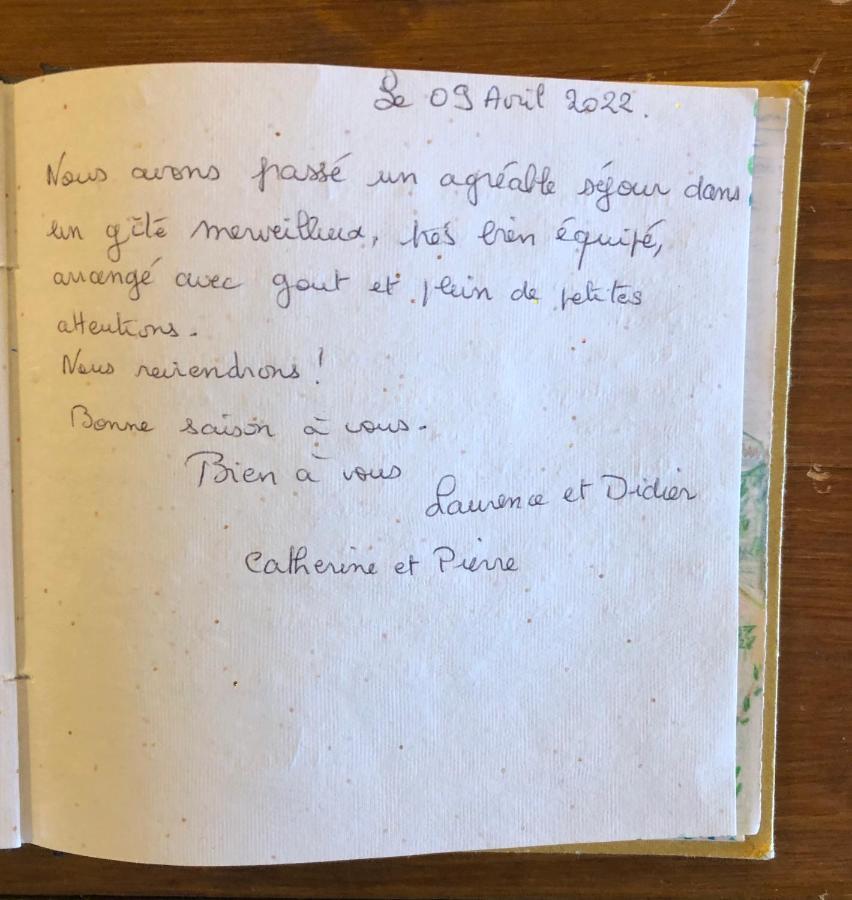 Le 09 Avril 2022.
Nous avons passé un agréable séjour dans
un gîté merveilleux, très bien équipé,
arrangé avec gout et plein de petites
attentions.
Nous reviendrons !
Bonne saison à vous.
Bien à vous
Laurence et Didier
Catherine et Pierre